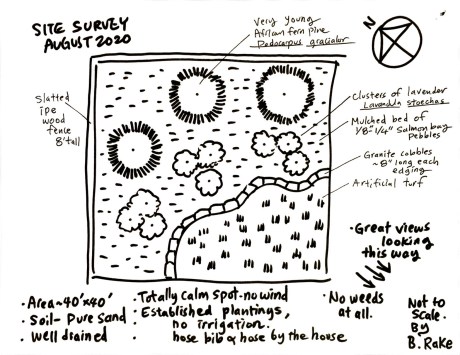 SITE SURVEY
AUGUST 2020
Very young
African fern pine
Podocarpus gracialor
N
Slatted
ipe
wood
fence
8' tall
Clusters of lavender
Lavandula stoechas
Mulched bed of
1/8"-1/4" Salmon bay
Pebbles
Granite cobbles
~8" long each
edging
Artificial turf
• Great views
looking
this way
• Area ~ 40'x40'
• Soil - Pure sand
• Well drained
• Totally calm spot - no wind
• Established plantings,
no irrigation.
• hose bib & hose by the house
• No weeds
at all.
Not to
Scale.
By
B. Rake